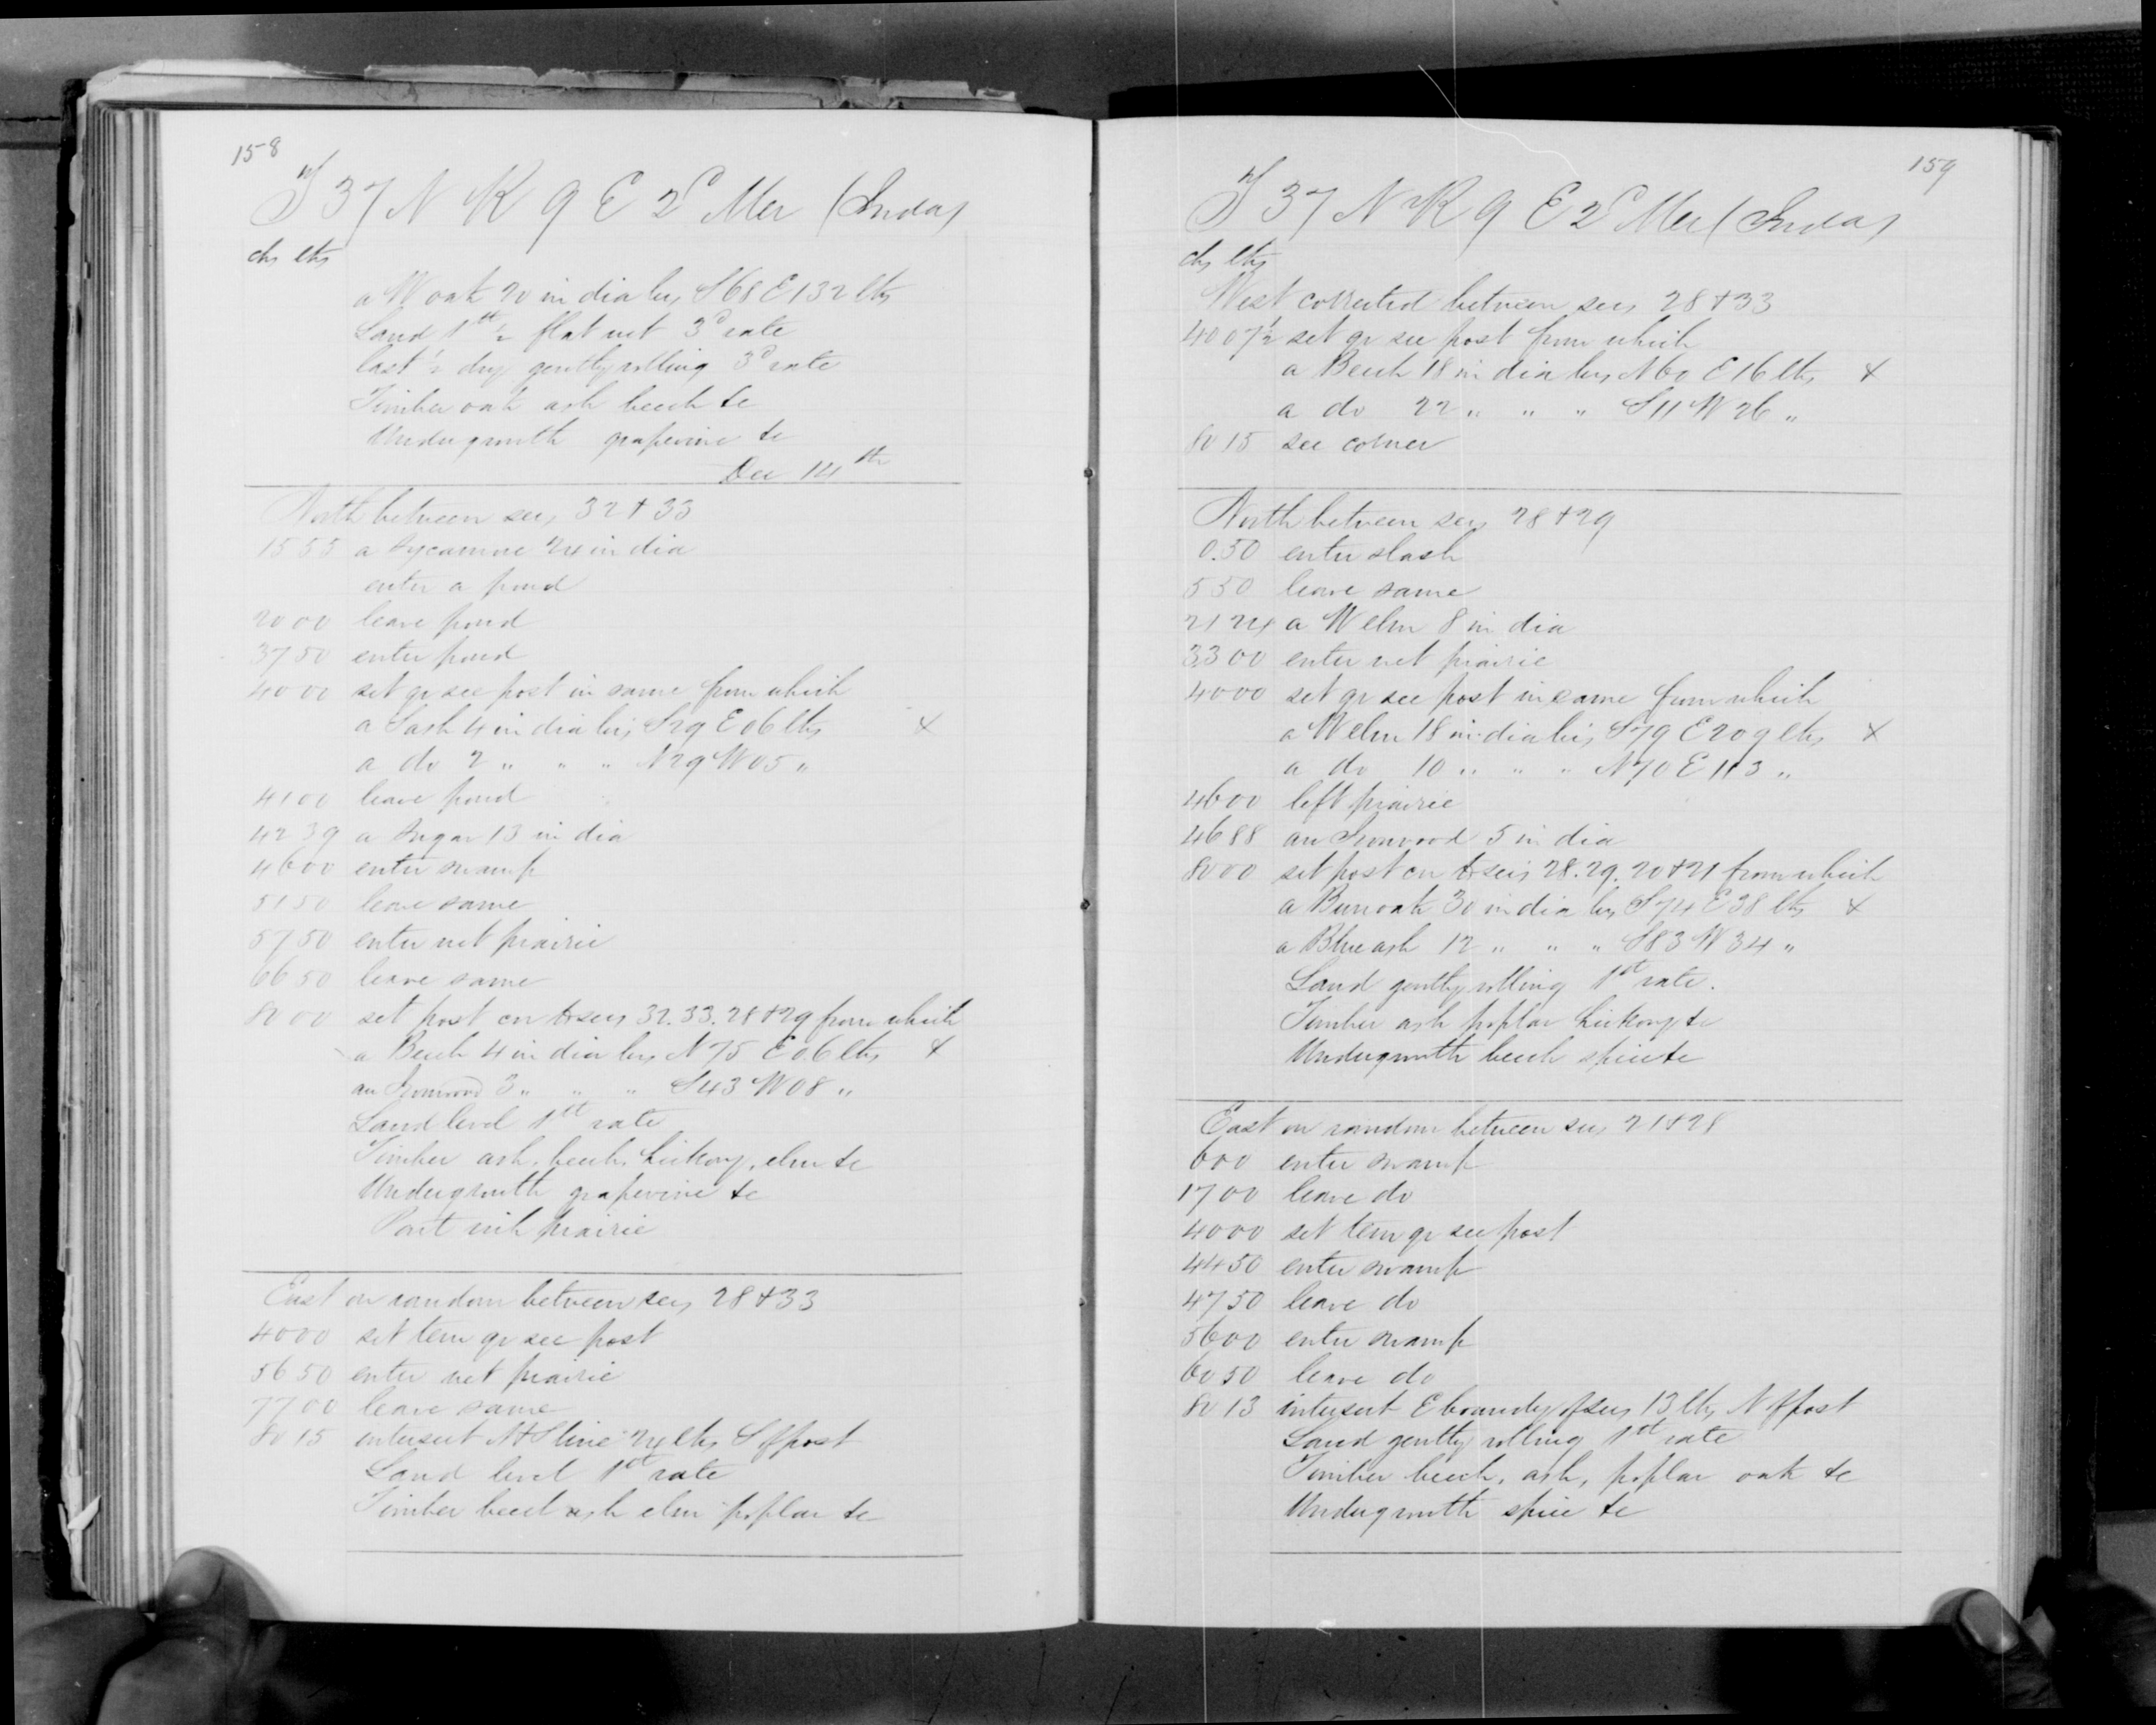 158
T 37 N R 9 E 2d Mer (Inda)
chs lks
a W oak 20 in dia brs S 68 E 132 lks
Land 1st ½ flat wet 3d rate
last ½ dry gently rolling 3d rate
Timber oak ash beech &c
Undergrowth grapevine &c
Dec 14th
North between secs 32 & 33
15 55 a Sycamore 24 in dia
enter a pond
20 00 leave pond
37 50 enter pond
40 00 set qr sec post in same from which
a S ash 4 in dia brs S 29 E 06 lks x
a do 2 " " " N 29 W 05 "
41 00 leave pond
42 39 a Sugar 13 in dia
46 00 enter swamp
51 50 leave same
57 50 enter wet prairie
66 50 leave same
80 00 set post cor to secs 32. 33. 28 & 29 from which
a Beech 4 in dia brs N 75 E 06 lks x
an Ironwood 3 " " " S 43 W 08 "
Land level 1st rate
Timber ash, beech, hickory, elm &c
Undergrowth grapevine &c
Part wet prairie
East on random between secs 28 & 33
40 00 set tem qr sec post
56 50 enter wet prairie
77 00 leave same
80 15 intersect N & S line 24 lks S of post
Land level 1st rate
Timber beech ash elm poplar &c
159
T 37 N R 9 E 2d Mer (Inda)
chs lks
West corrected between secs 28 & 33
40 07½ set qr sec post from which
a Beech 18 in dia brs N 60 E 16 lks x
a do 22 " " " S 11 W 26 "
80 15 sec corner
North between secs 28 & 29
0.50 enter slash
5 50 leave same
21 24 a W elm 8 in dia
33 00 enter wet prairie
40 00 set qr sec post in same from which
a W elm 18 in dia brs S 79 E 209 lks x
a do 10 " " " N 70 E 113 "
46 00 left prairie
46 88 an Ironwood 5 in dia
80 00 set post cor to secs 28. 29. 20 & 21 from which
a Bur oak 30 in dia brs S 74 E 38 lks x
a Blue ash 12 " " " S 83 W 34 "
Land gently rolling 1st rate.
Timber ash poplar hickory &c
Undergrowth beech spice &c
East on random between secs 21 & 28
6 00 enter swamp
17 00 leave do
40 00 set tem qr sec post
44 50 enter swamp
47 50 leave do
56 00 enter swamp
60 50 leave do
80 13 intersect E boundy of secs 13 lks N of post
Land gently rolling 1st rate
Timber beech, ash, poplar oak &c
Undergrowth spice &c